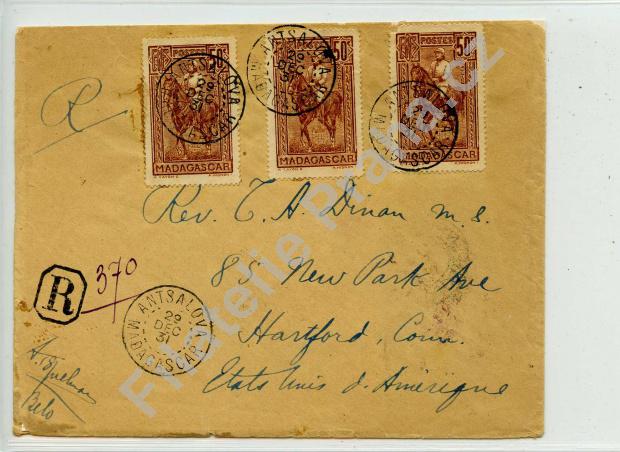 RF POSTES 50c
MADAGASCAR
RF POSTES 50c
MADAGASCAR
RF POSTES 50c
MADAGASCAR
ANTSALOVA
MADAGASCAR
R
Rev. T. A. Dinan m.s.
85 New Park Ave
Hartford, Conn.
Etats Unis d'Amérique
R 370
ANTSALOVA
29
DEC
31
MADAGASCAR
Belo
Filatelie Praha.cz